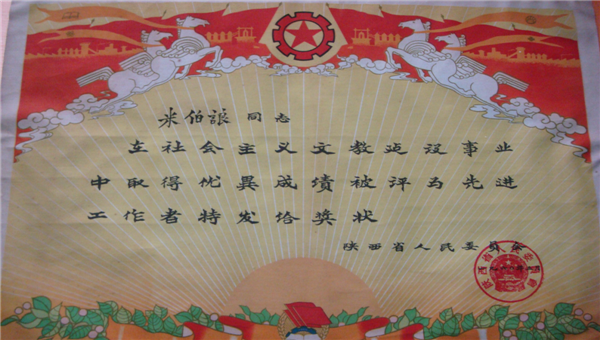 米伯讓同志
在社会主义文教建设事业
中取得优異成绩被评为先进
工作者特发给奖状
陕西省人民委員会